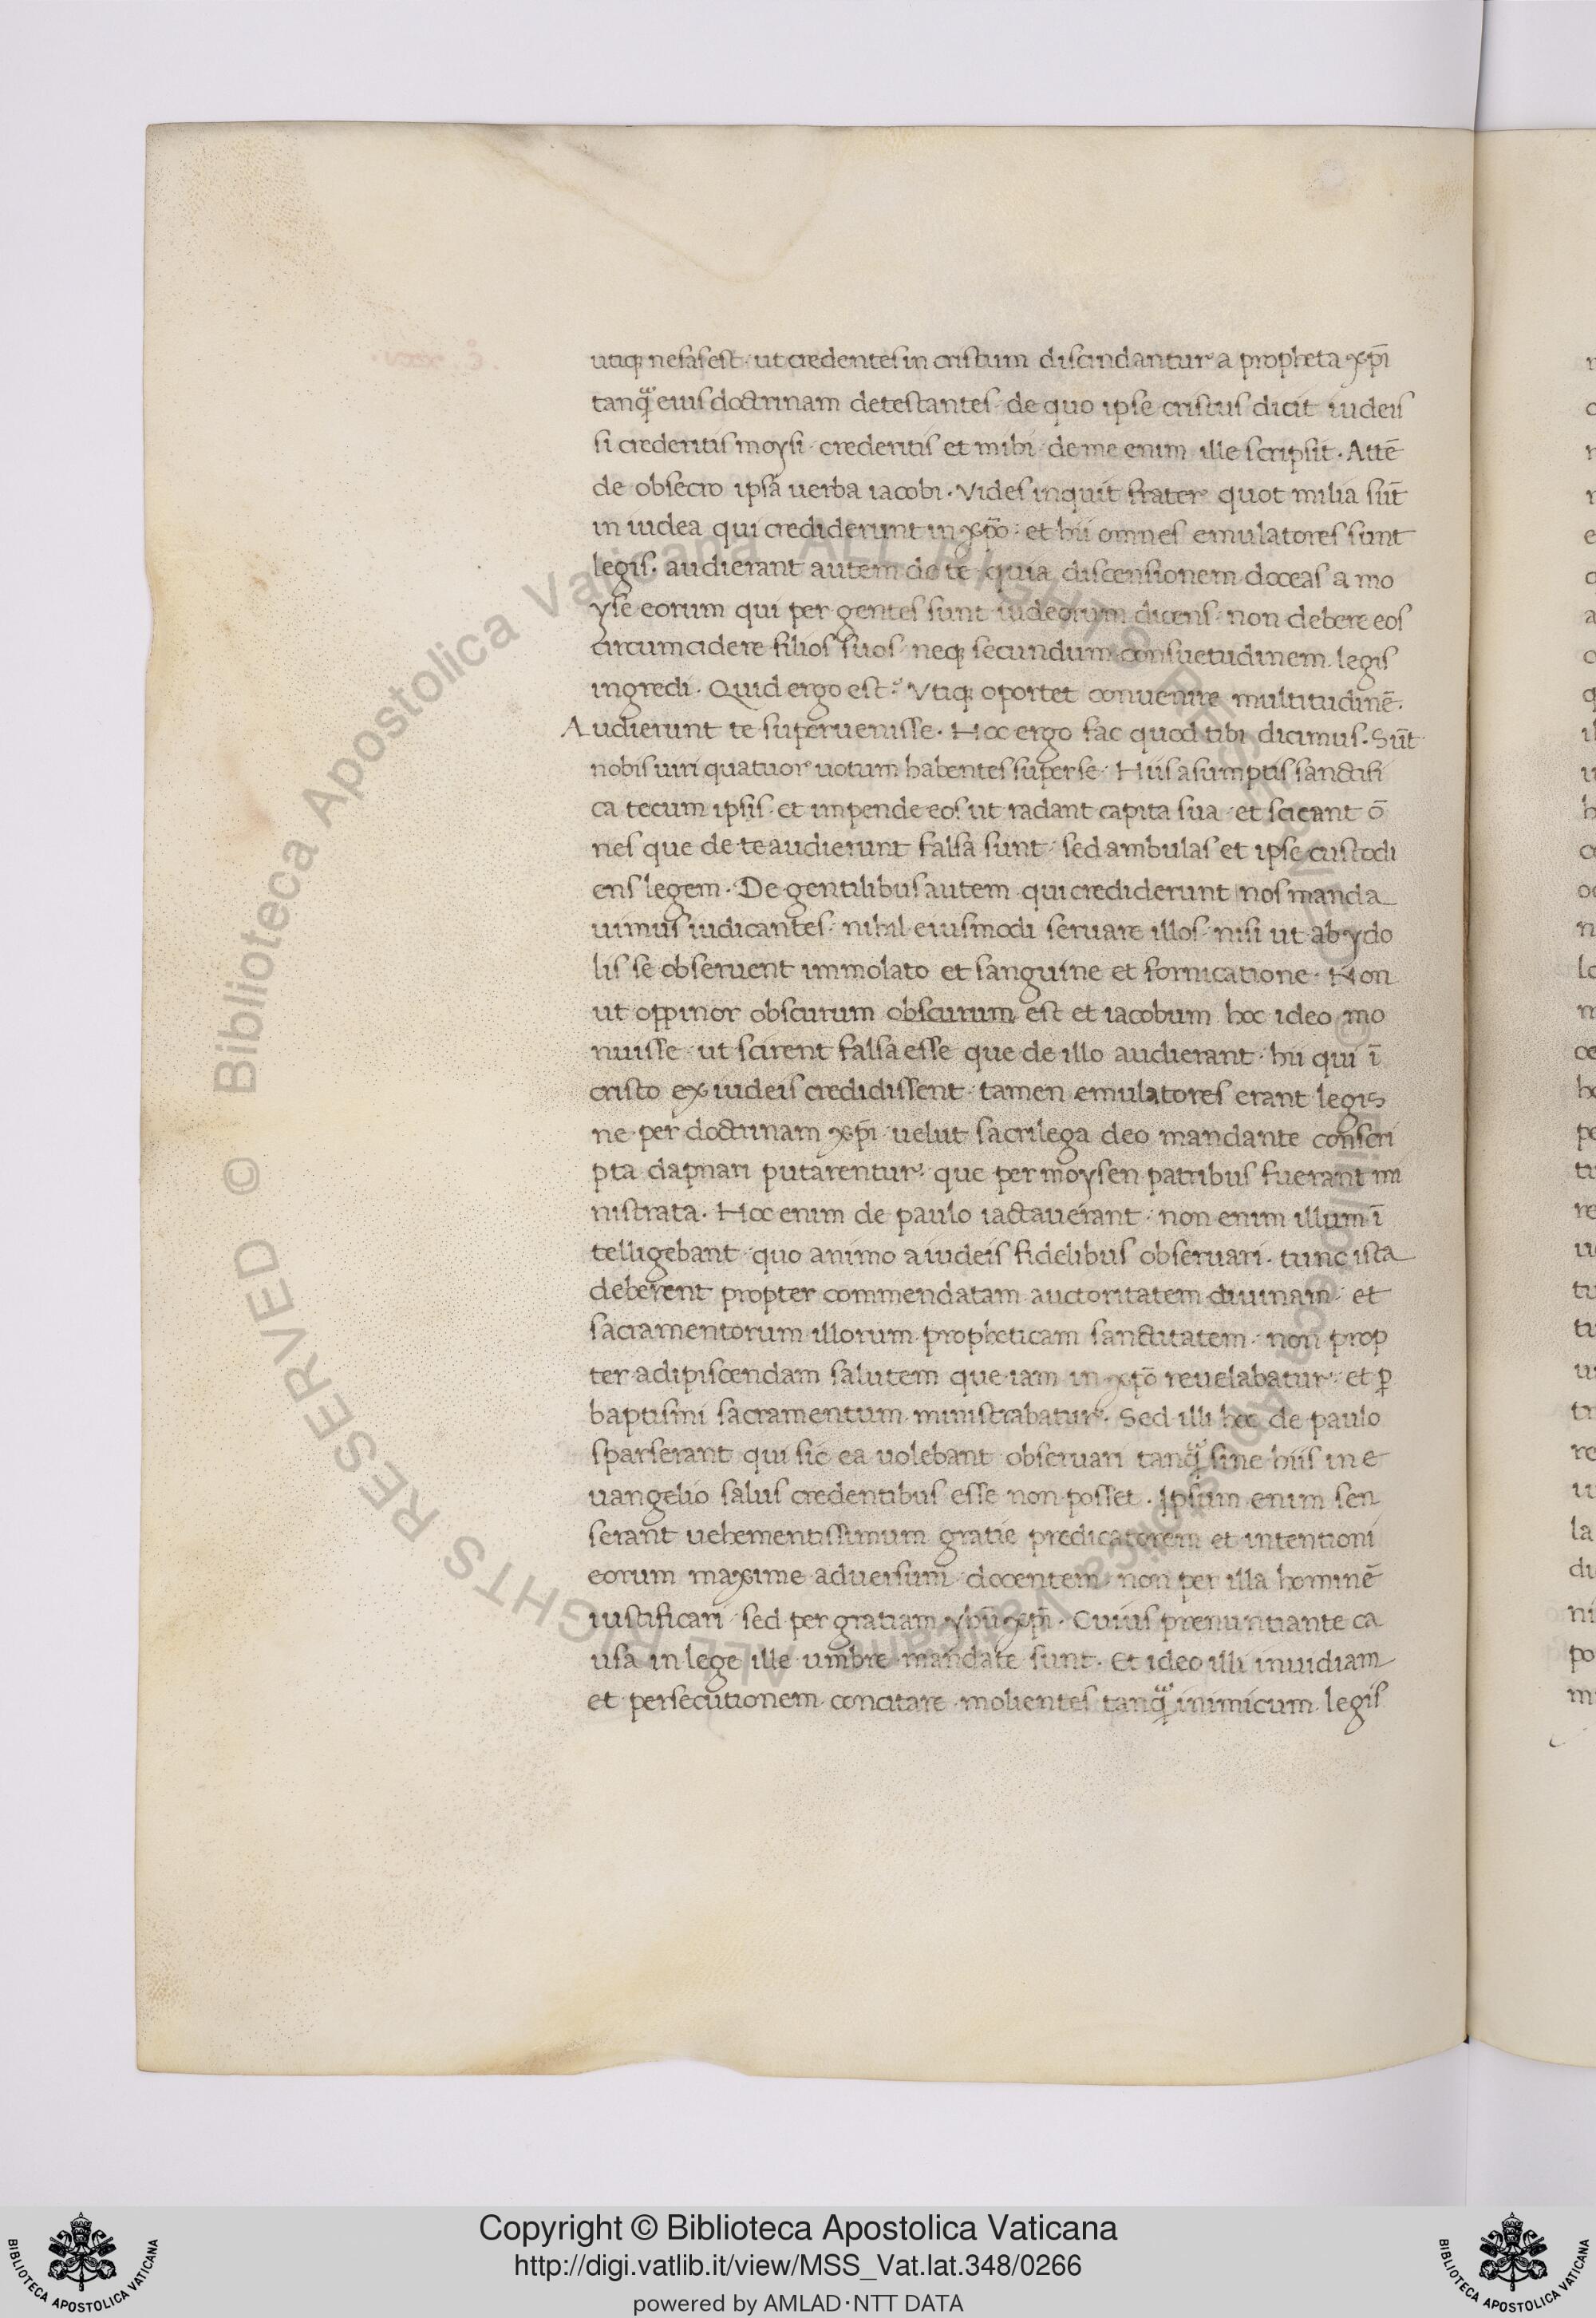 utiq nefas est · ut credentes in cristum discindantur a propheta xp̄i
tanq̃ eius doctrinam detestantes · de quo ipse cristus dicit iudeis
si crederitis moysi · crederitis et mihi · de me enim ille scripsit · Attē
de obsecro ipsa uerba iacobi · Vides inquit frater quot milia sūt
in iudea qui crediderunt in xp̄o · et hii omnes emulatores sunt
legis · audierant autem de te · quia discensionem doceas a mo
yse eorum qui per gentes sunt iudeorum dicens · non debere eos
circumcidere filios suos · neq secundum consuetudinem legis
ingredi · Quid ergo est? Vtiq oportet conuenire multitudinē ·
Audierunt te superuenisse · Hoc ergo fac quod tibi dicimus · Sūt
nobis uiri quatuor uotum habentes super se · Hiis asumptis sanctifi
ca te cum ipsis · et impende eos ut radant capita sua · et scieant ō
nes que de te audierunt falsa sunt · sed ambulas et ipse custodi
ens legem · De gentilibus autem qui crediderunt nos manda
uimus iudicantes · nihil eiusmodi seruare illos · nisi ut ab ydo
lis se obseruent immolato et sanguine et fornicatione · Non
ut oppinor obscurum obscurum est et iacobum hoc ideo mo
nuisse · ut scirent falsa esse que de illo audierant · hii qui ī
cristo ex iudeis credidissent · tamen emulatores erant legis
ne per doctrinam xp̄i uelut sacrilega deo mandante conscri
pta dapnari putarentur · que per moysen patribus fuerant mi
nistrata · Hoc enim de paulo iactauerant · non enim illum ī
telligebant · quo animo a iudeis fidelibus obseruari · tunc ista
deberent propter commendatam auctoritatem diuinam · et
sacramentorum illorum propheticam sanctitatem · non prop
ter adipiscendam salutem que iam in xp̄o reuelabatur · et p̱
baptismi sacramentum ministrabatur · Sed illi hec de paulo
sparserant qui sic ea uolebant obseruari tanq̃ sine hiis in e
uangelio salus credentibus esse non posset · Ipsum enim sen
serant uehementissimum gratie predicatorem et intentioni
eorum maxime aduersum · docentem non per illa hominē
iustificari · sed per gratiam yhū xp̄i · Cuius prenuntiante ca
usa in lege ille umbre mandate sunt · Et ideo illi inuidiam
et persecutionem concitare molientes tanq̃ inimicum legis
Copyright © Biblioteca Apostolica Vaticana
http://digi.vatlib.it/view/MSS_Vat.lat.348/0266
powered by AMLAD·NTT DATA